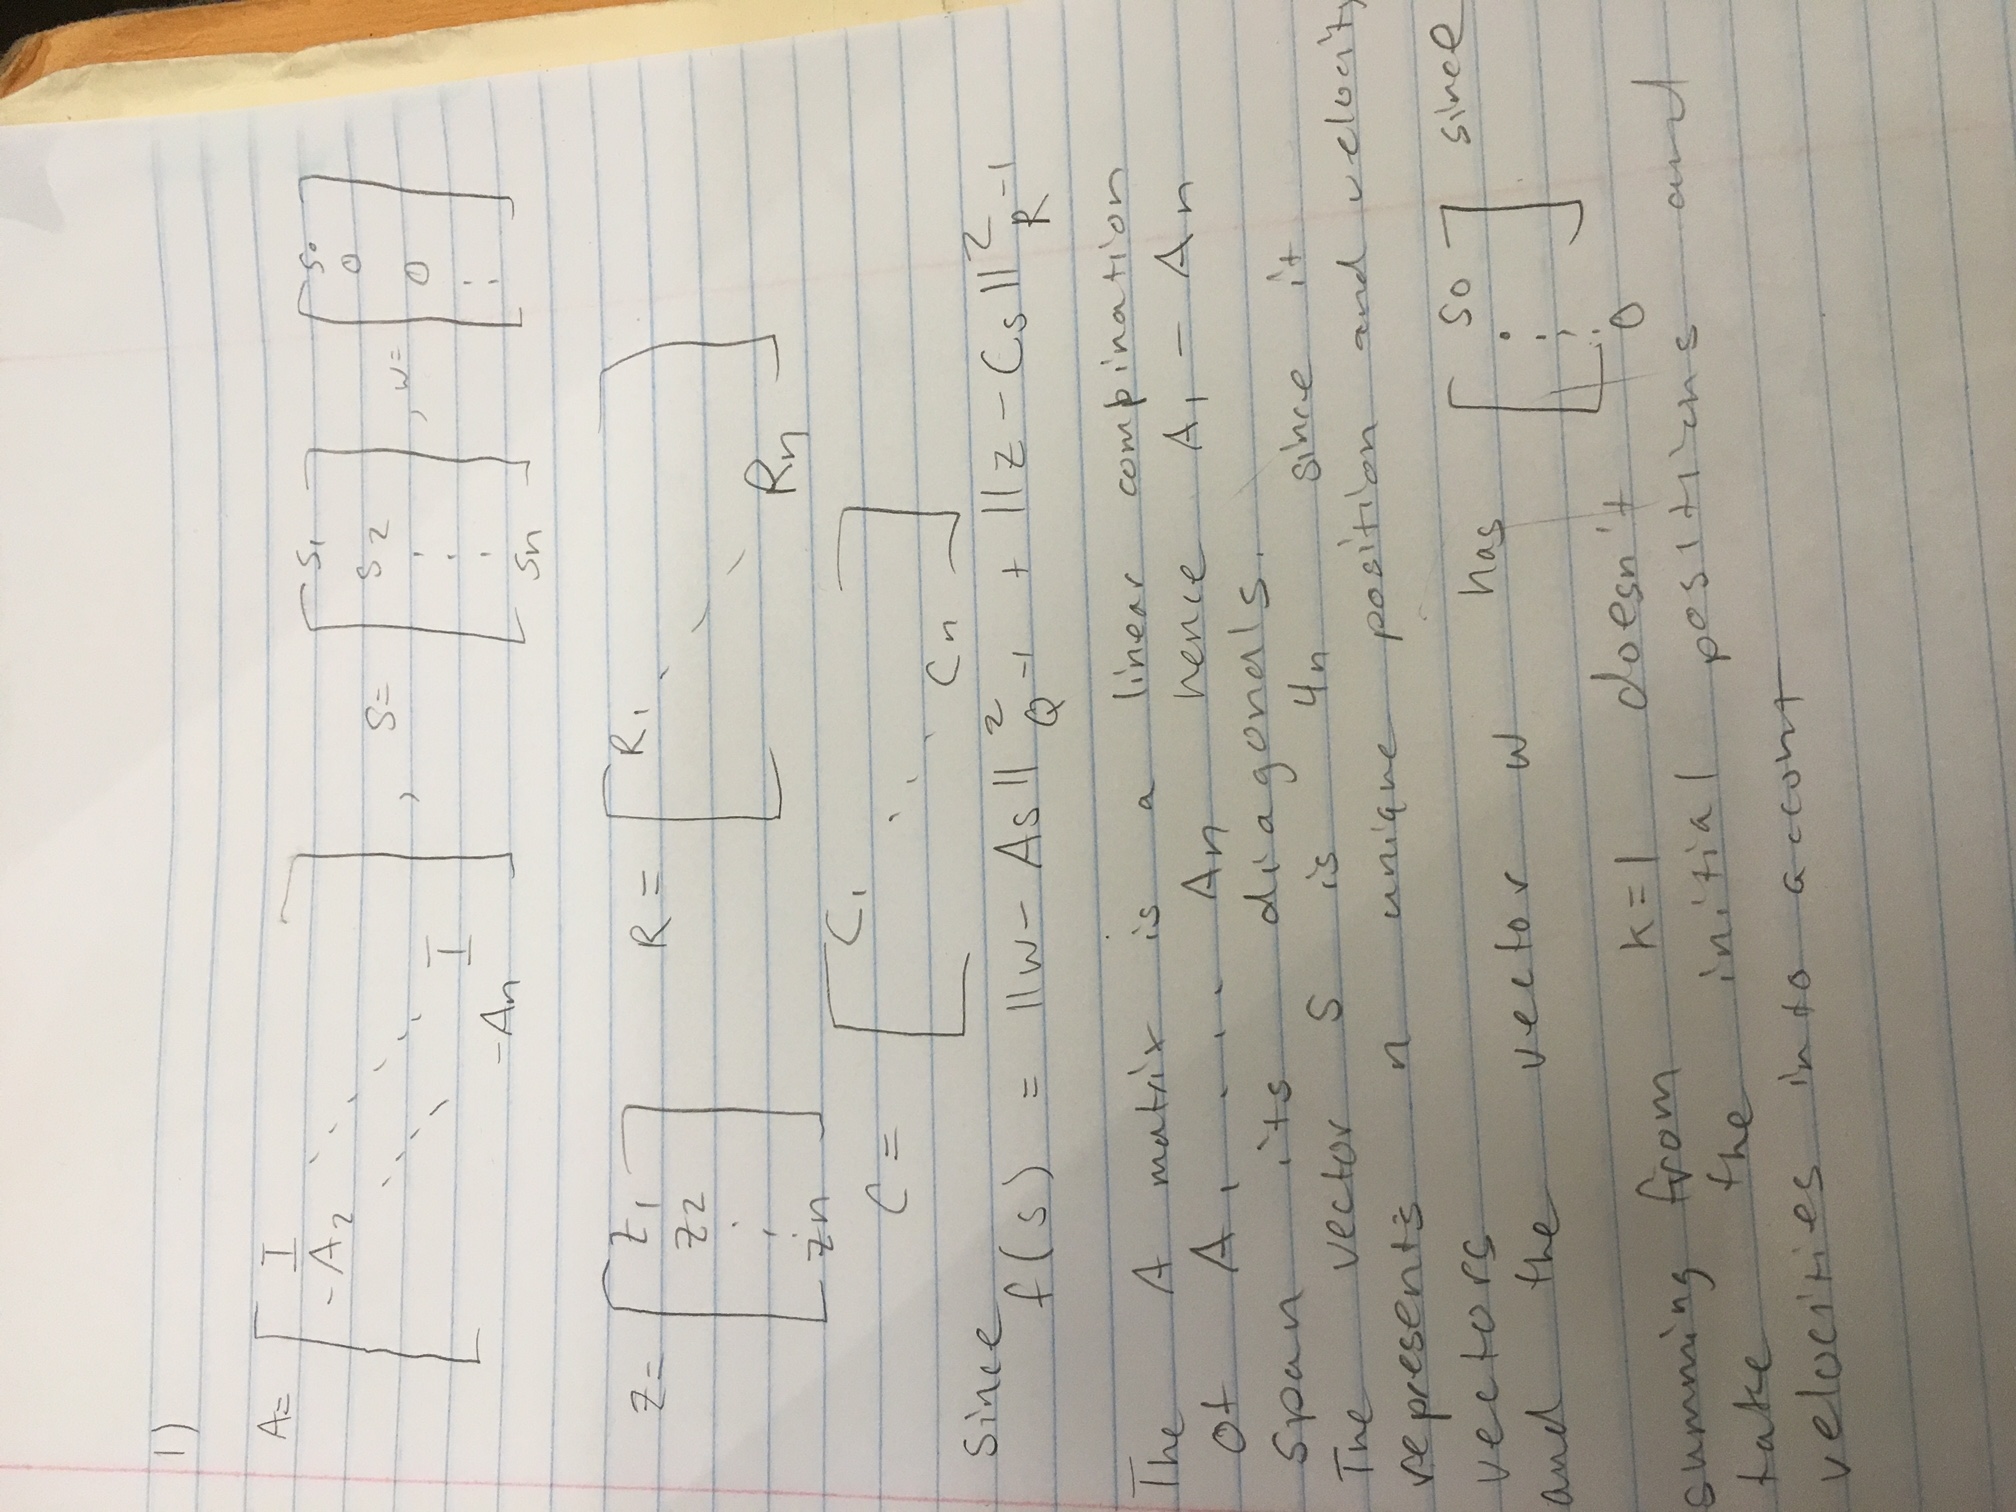 1)
A= [ I
-A2
I
-An ] , S= [ S1
S2
.
.
.
Sn ] , w= [ S0
0
0
⋮ ]
Z= [ Z1
Z2
.
.
.
Zn ] R = [ R1
Rn ]
C = [ C1
Cn ]
Since
f(s) = ||w- As||²Q-1 + ||z-Cs||²R-1
The A matrix is a linear combination
of A1 .... An hence A1 - An
span its diagonals.
The vector S is 4n since it
represents n unique position and velocity
vectors
and the vector w has [ S0
⋮
0 ] since
summing from k=1 doesn't
take the initial positions and
velocities into accont